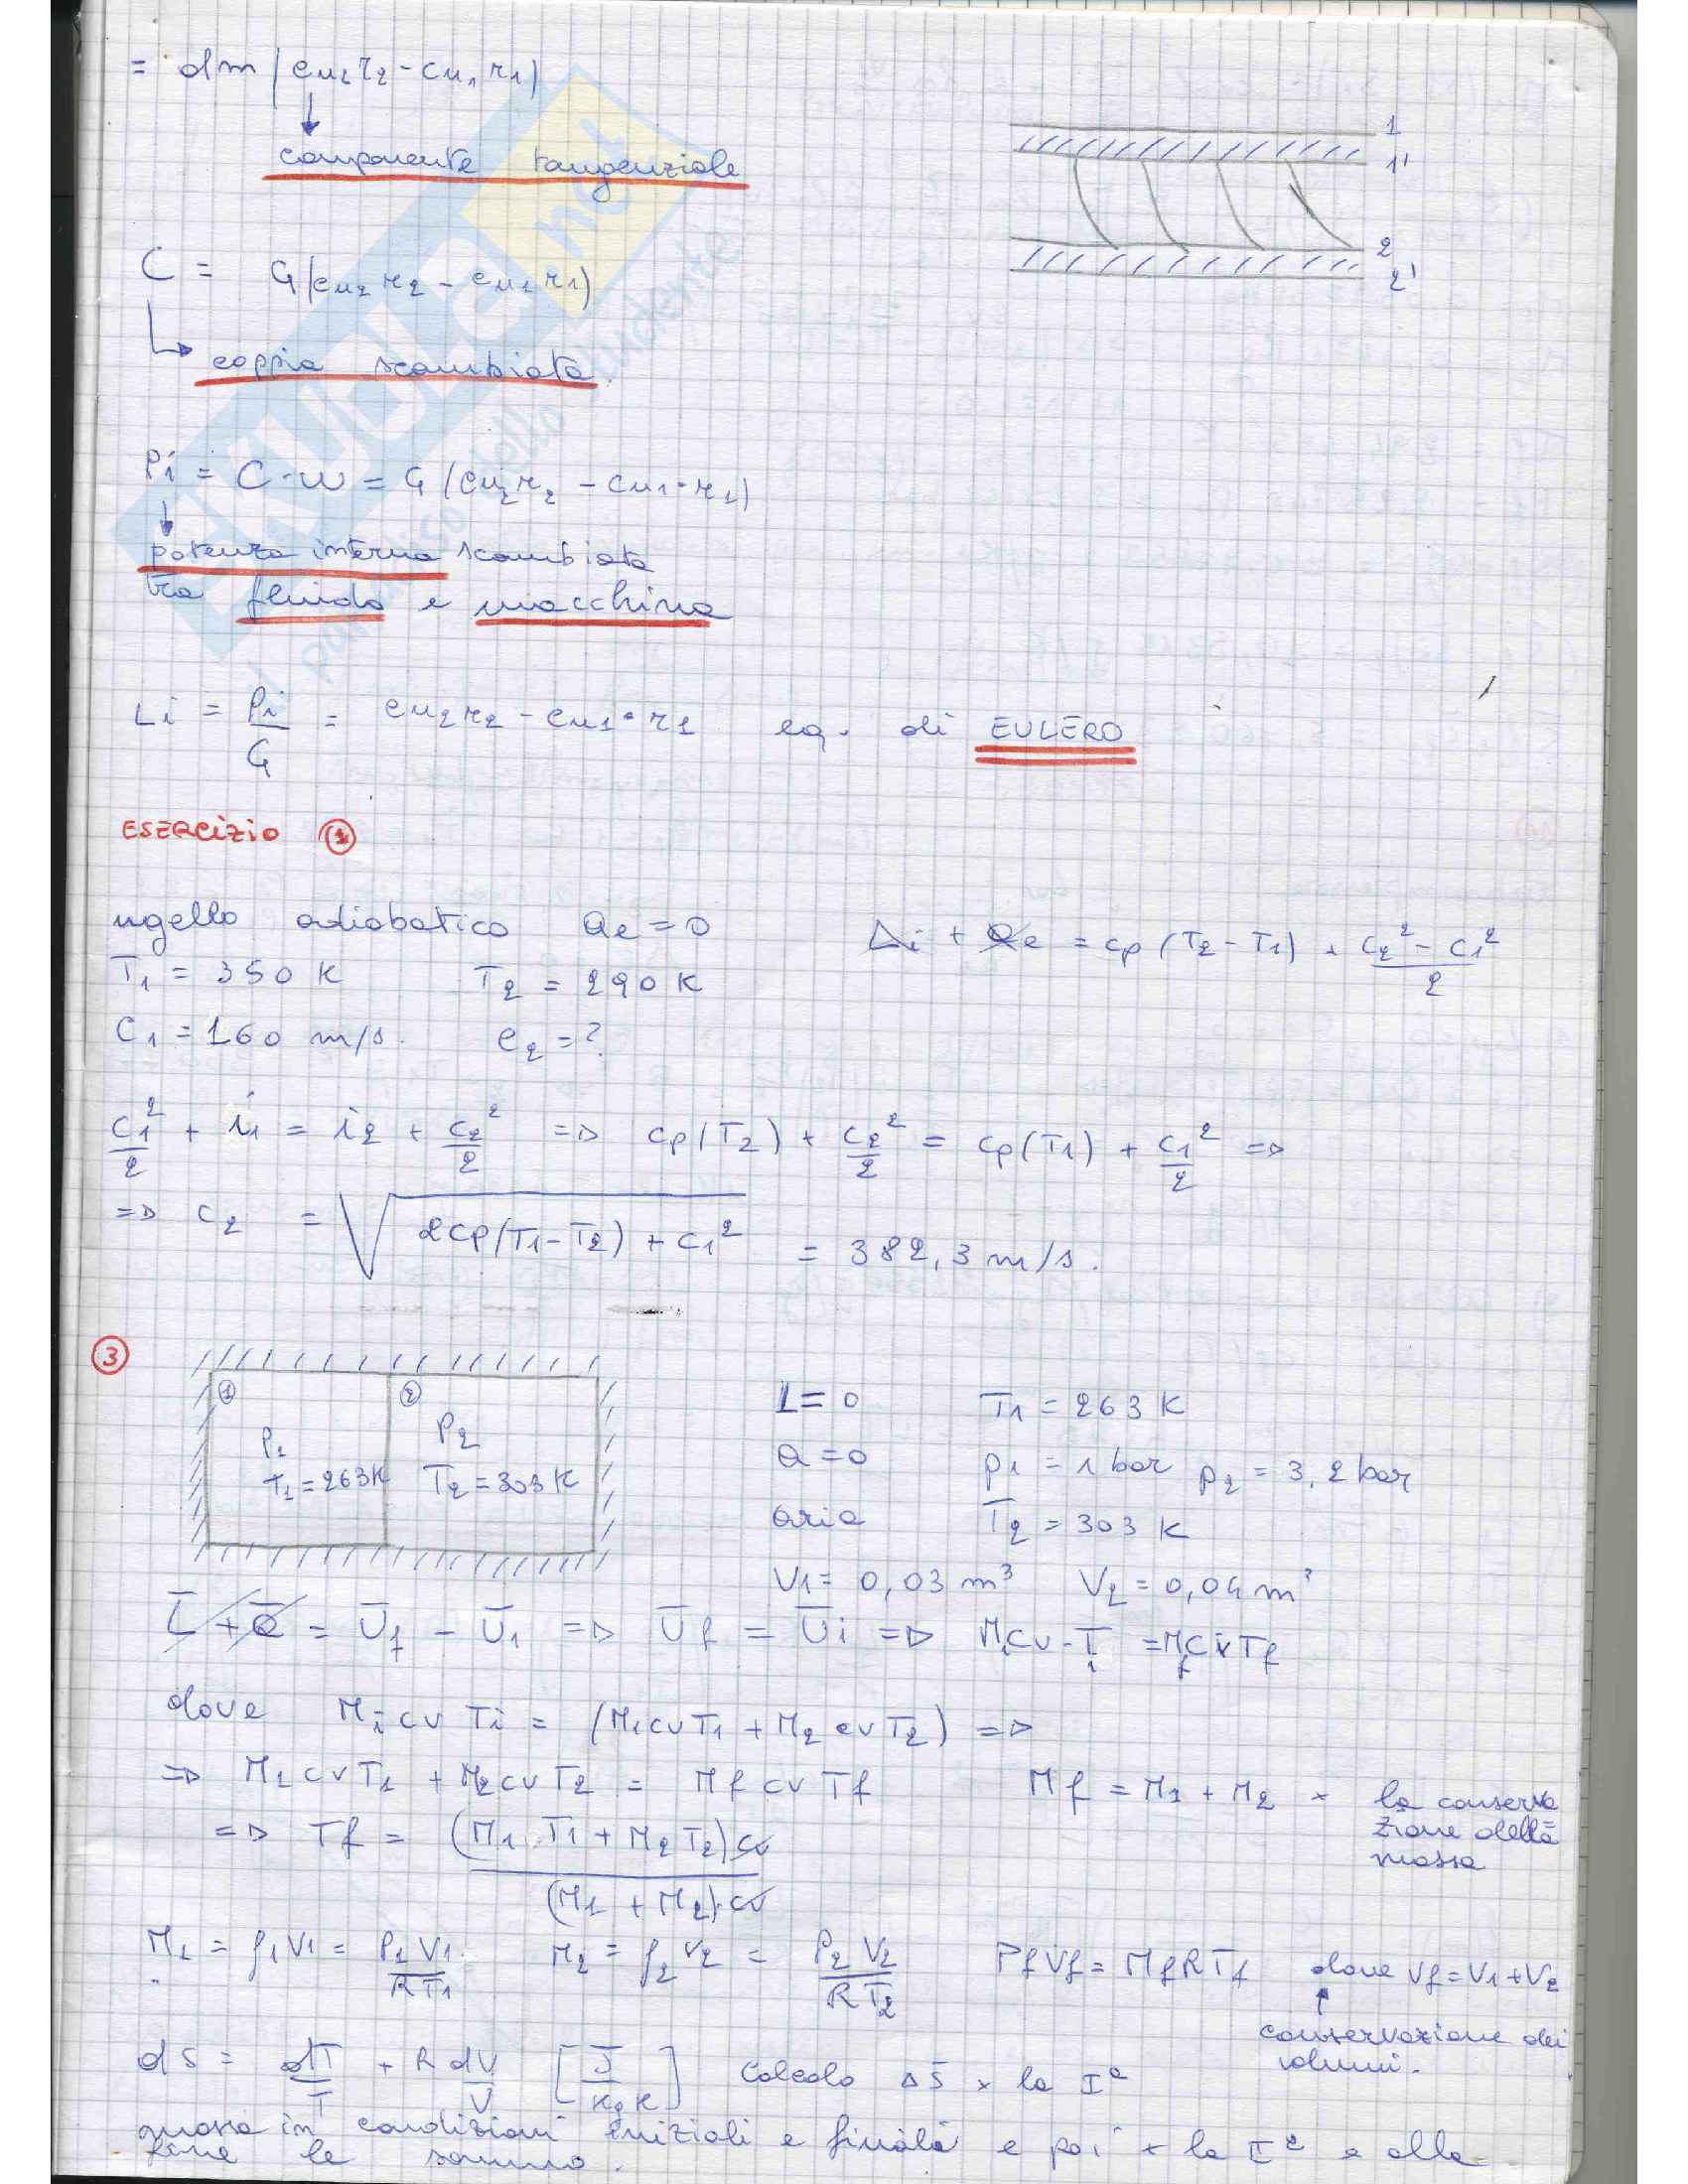 = dm (cu₂r₂ - cu₁r₁)
componente tangenziale
1
1'
2
2'
C = G(cu₂r₂ - cu₁r₁)
coppia scambiata.
Pi = C·w = G(cu₂r₂ - cu₁·r₁)
potenza interna scambiata
tra fluido e macchina
Li = Pi/G = cu₂r₂ - cu₁·r₁ eq. di EULERO
ESERCIZIO 1
ugello adiabatico Qe = 0
Li + Qe = cp(T₂ - T₁) + (c₂² - c₁²)/2
T₁ = 350 K T₂ = 290 K
C₁ = 160 m/s. c₂ = ?
c₁²/2 + i₁ = i₂ + c₂²/2 => cp(T₂) + c₂²/2 = cp(T₁) + c₁²/2 =>
=> c₂ = √(2cp(T₁-T₂) + c₁²) = 382,3 m/s.
3
1 2
P₁ P₂
T₁=263K T₂=303K
L=0 T₁=263 K
Q=0 p₁=1 bar p₂=3,2 bar
aria T₂=303 K
V₁=0,03 m³ V₂=0,04 m³
L + Q = Uf - U₁ => Uf = Ui => Micv·Ti = Mfcv Tf
dove Mi cv Ti = (M₁cvT₁ + M₂cvT₂) =>
=> M₁cvT₁ + M₂cvT₂ = Mf cv Tf Mf = M₁ + M₂ x la conserva
zione della
massa
=> Tf = (M₁T₁ + M₂T₂)cv / (M₁ + M₂)·cv
M₁ = ρ₁V₁ = P₁V₁/RT₁ M₂ = ρ₂V₂ = P₂V₂/RT₂ PfVf = MfRTf dove Vf = V₁ + V₂
conservazione dei
volumi.
ds = dT/T + R dV/V [J/KgK] Calcolo ΔS x la Iª
massa in condizioni iniziali e finali e poi x la IIª e alla
fine le sommo.